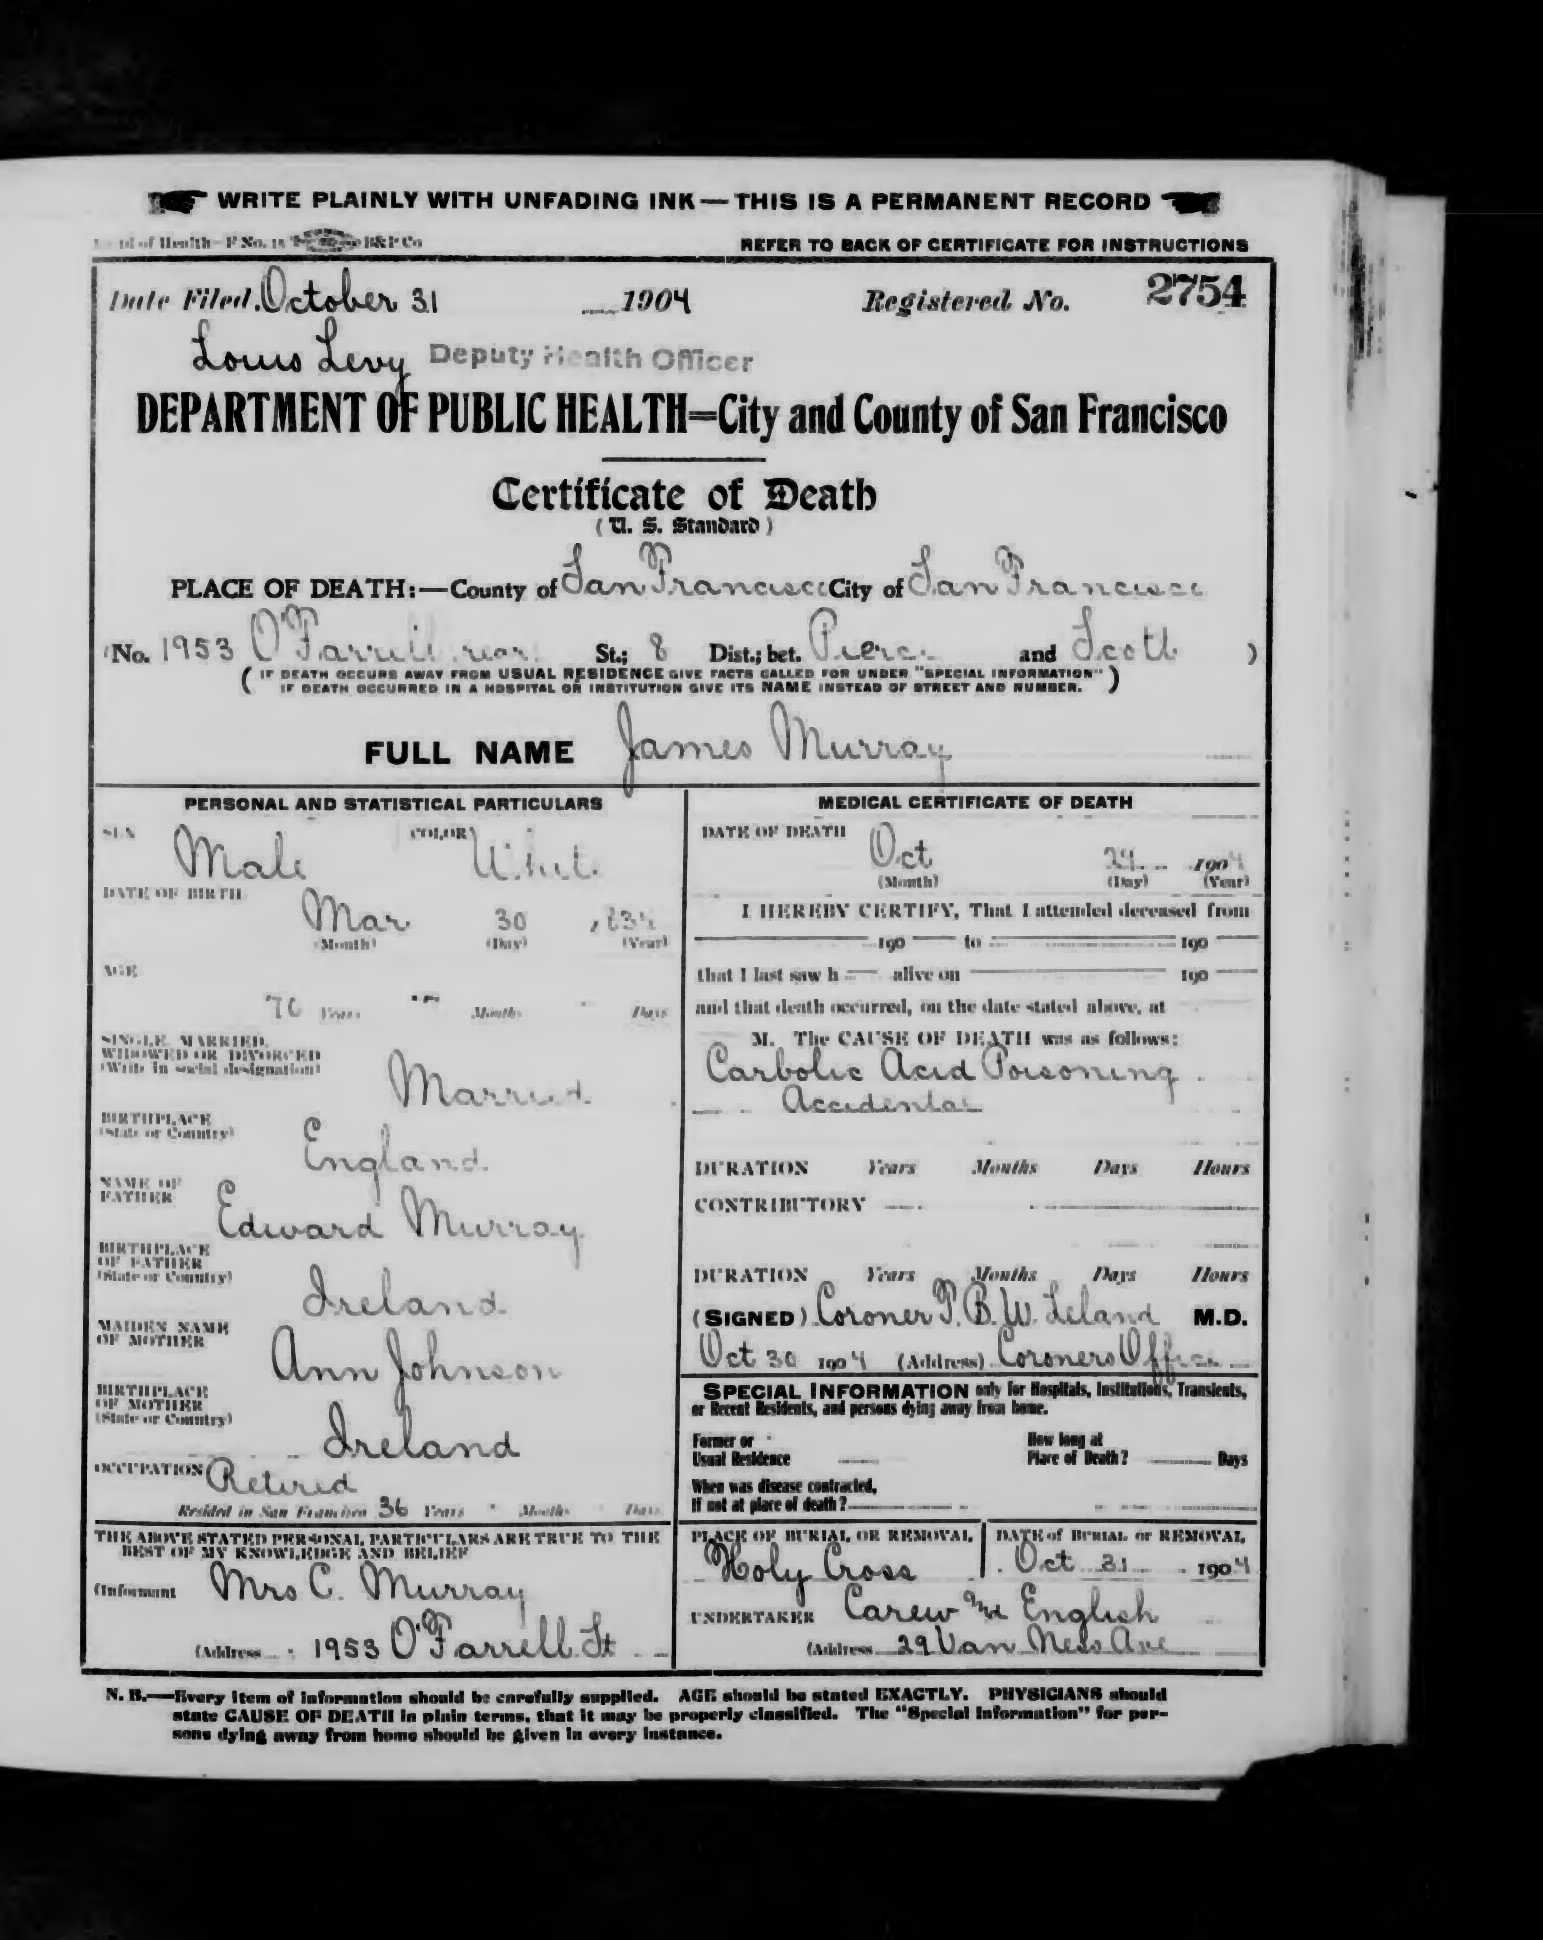 WRITE PLAINLY WITH UNFADING INK — THIS IS A PERMANENT RECORD
of Health—F No. B&P Co
REFER TO BACK OF CERTIFICATE FOR INSTRUCTIONS
Date Filed. October 31 1904 Registered No. 2754
Louis Levy Deputy Health Officer
DEPARTMENT OF PUBLIC HEALTH=City and County of San Francisco
Certificate of Death
(U. S. Standard)
PLACE OF DEATH:—County of San Francisco City of San Francisco
(No. 1953 O'Farrell rear St.; 8 Dist.; bet. Pierce and Scott )
(IF DEATH OCCURS AWAY FROM USUAL RESIDENCE GIVE FACTS CALLED FOR UNDER "SPECIAL INFORMATION"
IF DEATH OCCURRED IN A HOSPITAL OR INSTITUTION GIVE ITS NAME INSTEAD OF STREET AND NUMBER.)
FULL NAME James Murray
PERSONAL AND STATISTICAL PARTICULARS
SEX Male COLOR White
DATE OF BIRTH
Mar 30
(Month) (Day) (Year)
AGE
70 Years Months Days
SINGLE, MARRIED,
WIDOWED OR DIVORCED
(Write in social designation)
Married
BIRTHPLACE
(State or Country)
England
NAME OF
FATHER
Edward Murray
BIRTHPLACE
OF FATHER
(State or Country)
Ireland
MAIDEN NAME
OF MOTHER
Ann Johnson
BIRTHPLACE
OF MOTHER
(State or Country)
Ireland
OCCUPATION Retired
Resided in San Francisco 36 Years Months Days
THE ABOVE STATED PERSONAL PARTICULARS ARE TRUE TO THE
BEST OF MY KNOWLEDGE AND BELIEF
(Informant Mrs C. Murray
(Address 1953 O'Farrell St
MEDICAL CERTIFICATE OF DEATH
DATE OF DEATH
Oct 29 1904
(Month) (Day) (Year)
I HEREBY CERTIFY, That I attended deceased from
190 to 190
that I last saw h alive on 190
and that death occurred, on the date stated above, at
M. The CAUSE OF DEATH was as follows:
Carbolic Acid Poisoning
Accidental
DURATION Years Months Days Hours
CONTRIBUTORY
DURATION Years Months Days Hours
(SIGNED) Coroner T. B. W. Leland M.D.
Oct 30 1904 (Address) Coroners Office
SPECIAL INFORMATION only for Hospitals, Institutions, Transients,
or Recent Residents, and persons dying away from home.
Former or
Usual Residence
How long at
Place of Death? Days
When was disease contracted,
If not at place of death?
PLACE OF BURIAL OR REMOVAL
Holy Cross
DATE of BURIAL or REMOVAL
Oct 31 1904
UNDERTAKER Carew and English
(Address 29 Van Ness Ave
N. B.—Every item of information should be carefully supplied. AGE should be stated EXACTLY. PHYSICIANS should
state CAUSE OF DEATH in plain terms, that it may be properly classified. The "Special Information" for per-
sons dying away from home should be given in every instance.